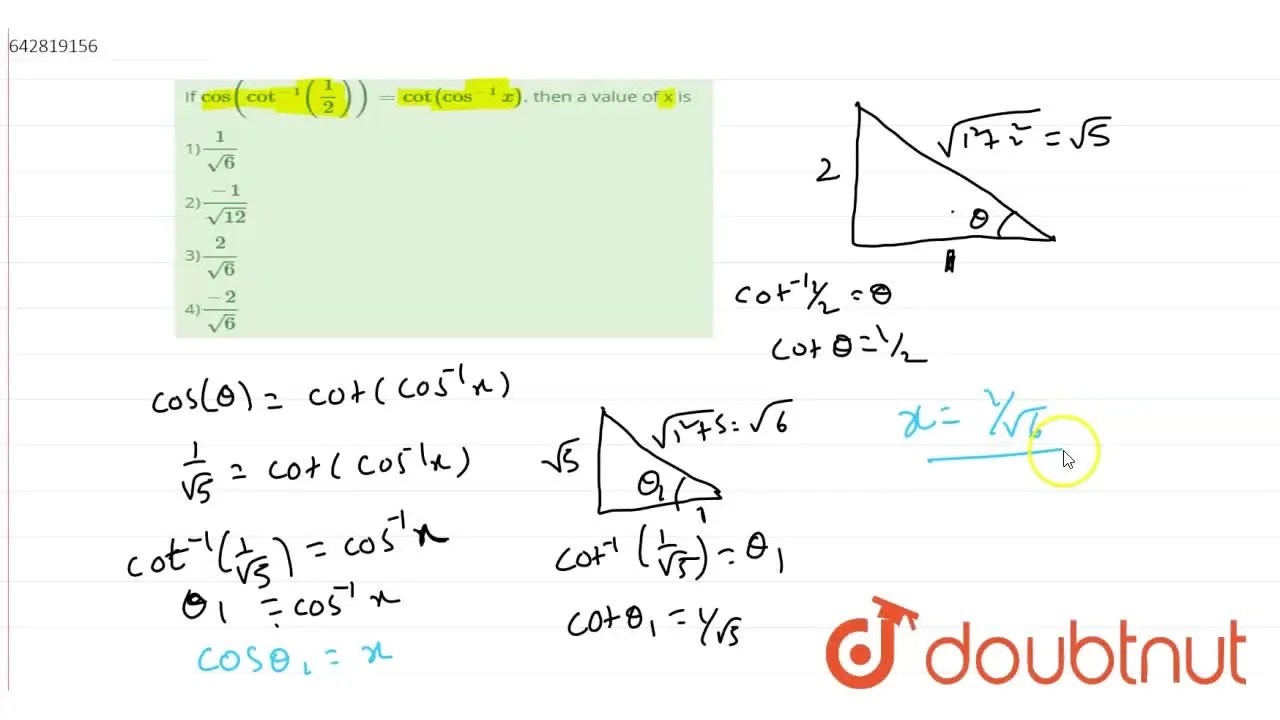 642819156
If cos(cot⁻¹(1/2)) = cot(cos⁻¹ x). then a value of x is
1) 1/√6
2) −1/√12
3) 2/√6
4) −2/√6
√1²+2² = √5
2
θ
1
cot⁻¹ 1/2 = θ
cot θ = 1/2
cos(θ) = cot(cos⁻¹x)
1/√5 = cot(cos⁻¹x)
cot⁻¹(1/√5) = cos⁻¹x
θ₁ = cos⁻¹x
cosθ₁ = x
√1²+5 = √6
√5
θ₁
1
cot⁻¹(1/√5) = θ₁
cotθ₁ = 1/√5
x = 1/√6
doubtnut